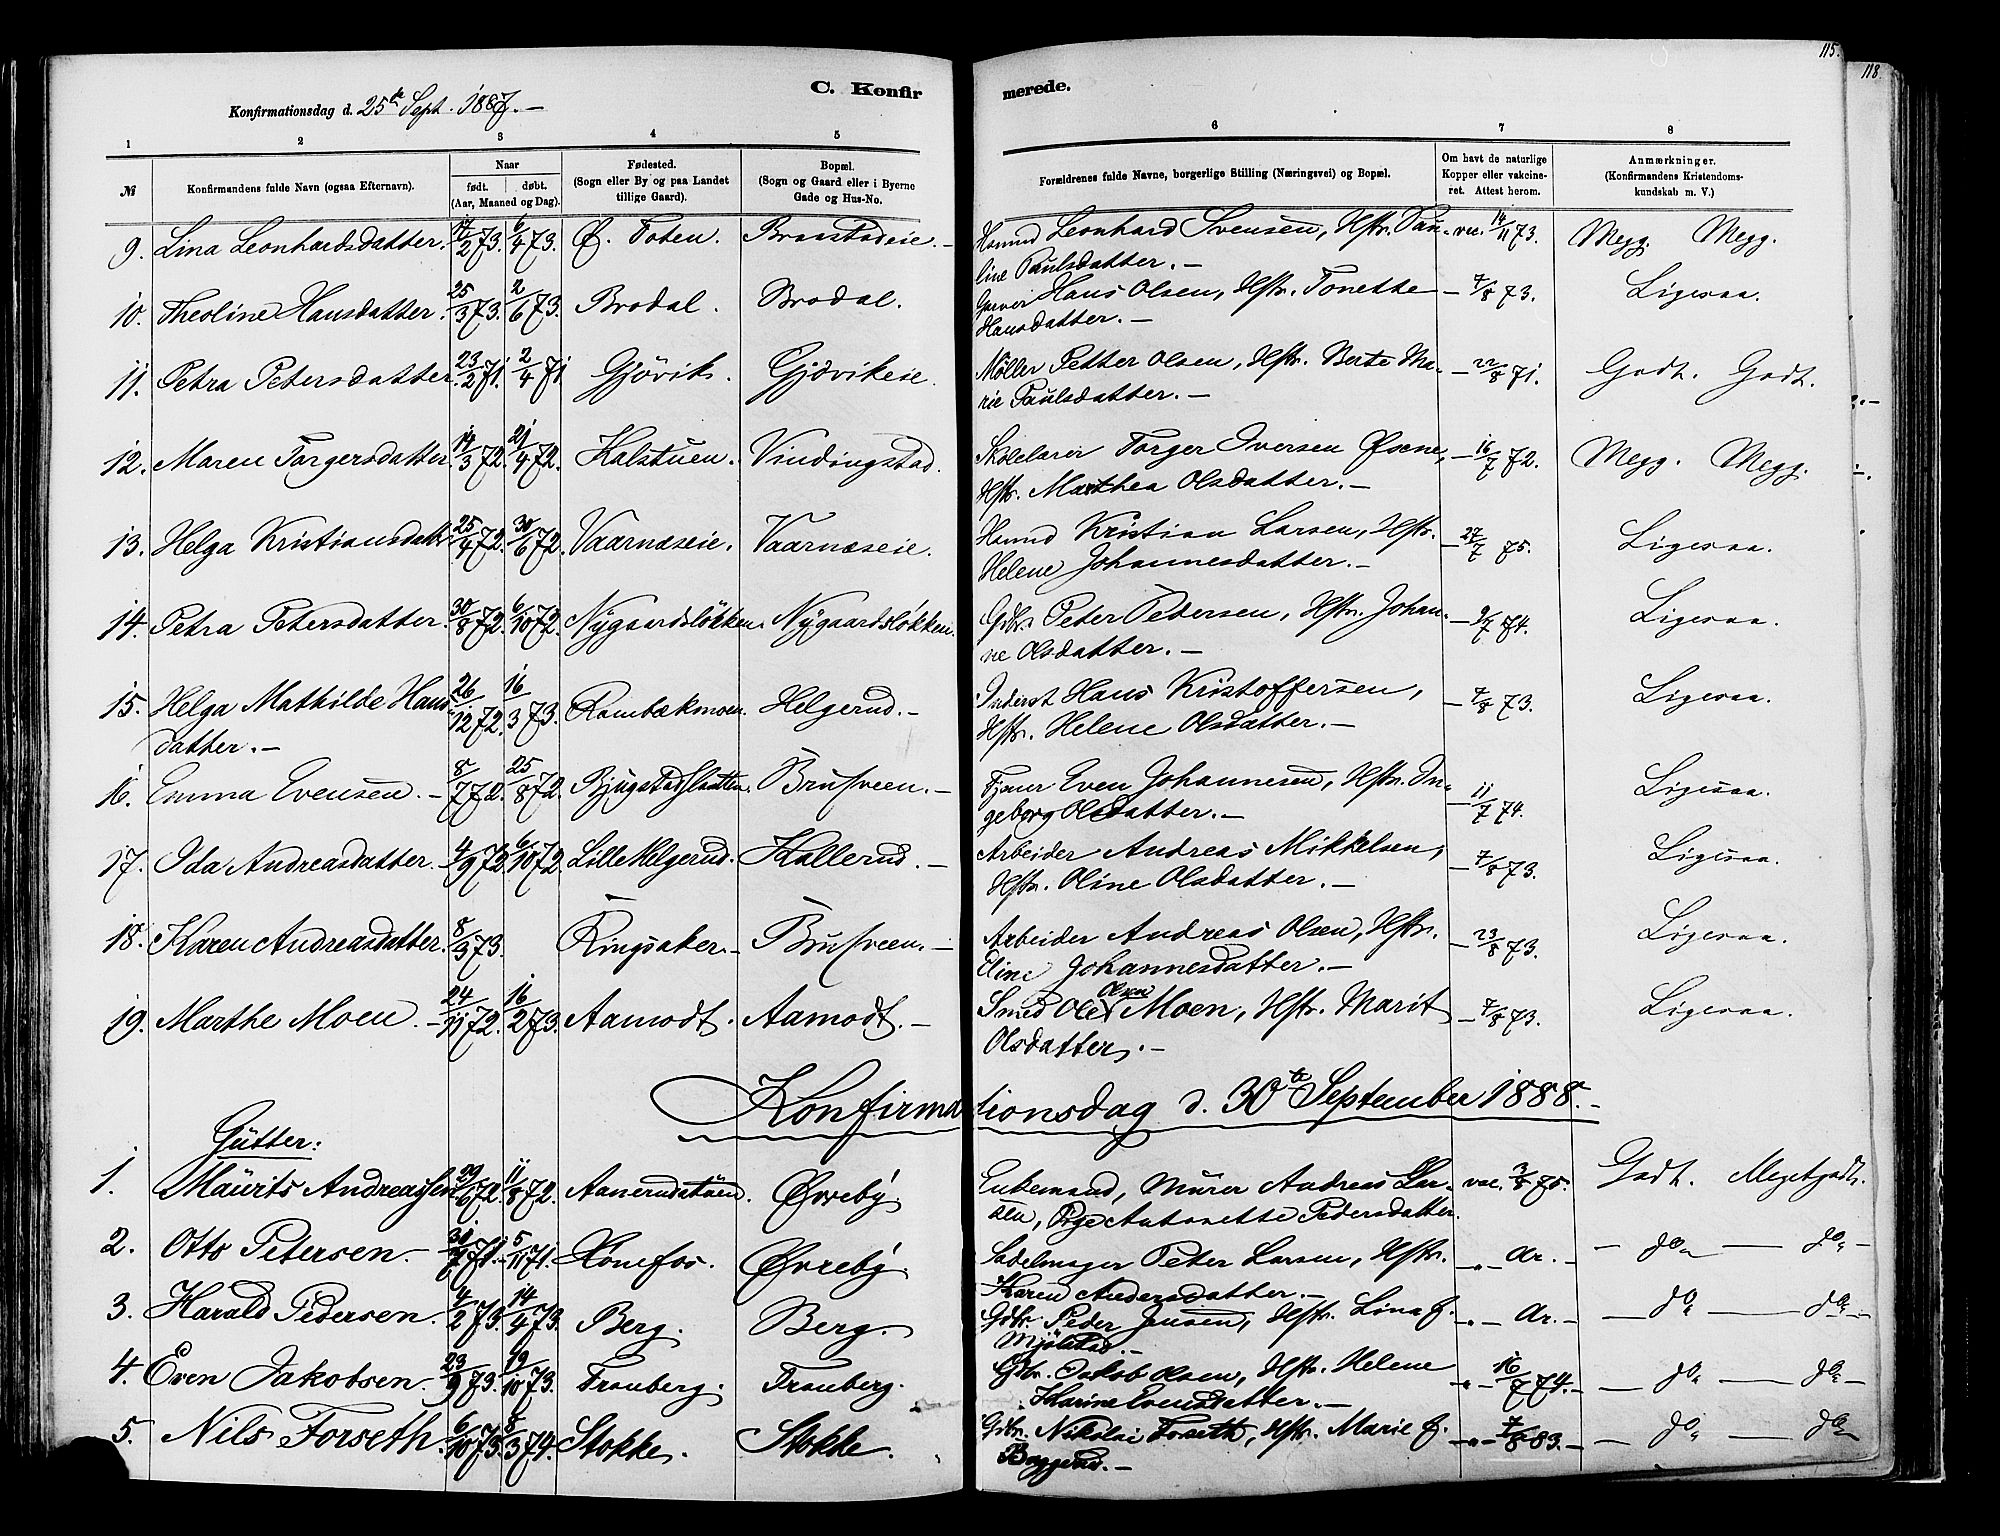 115.
118
C. Konfirmerede.
Konfirmationsdag d. 25de Sept. 1887. —
1 2 3 4 5 6 7 8
№ Konfirmandens fulde Navn (ogsaa Efternavn). Naar født. døbt. (Aar, Maaned og Dag). Fødested. (Sogn eller By og paa Landet tillige Gaard). Bopæl. (Sogn og Gaard eller i Byerne Gade og Hus-No. Forældrenes fulde Navne, borgerlige Stilling (Næringsvei) og Bopæl. Om havt de naturlige Kopper eller vakcineret. Attest herom. Anmærkninger. (Konfirmandens Kristendomskundskab m. V.)
9. Lina Leonhardsdatter. 17/2 73. 6/4 73. Ø. Toten. Braastadeie. — Husmd Leonhard Svensen, Hstr. Pau- vac. 14/11 73. Megg. Megg.
line Paulsdatter. —
10. Theoline Hansdatter. 25/3 73. 2/6 73. Brodal. Brodal. Hans Olsen, Hstr. Tonette — 7/8 73. Ligesaa.
Hansdatter. —
11. Petra Petersdatter. 23/2 71. 2/4 71 Gjövik. Gjövikeie. Møller Petter Olsen, Hstr. Berte Ma- — 22/8 71. Godt. Godt.
rie Paulsdatter. —
12. Maren Torgersdatter 14/3 72. 21/4 72. Kalstuen. Vindingstad. Skolelærer Torger Iversen Øsene, — 16/7 72. Megg. Megg.
Hstr. Marthea Olsdatter. —
13. Helga Kristiansdatt. 25/4 72. 30/6 72. Vaarnæseie. Vaarnæseie. Husmd Kristian Larsen, Hstr. — 27/7 75. Ligesaa.
Helene Johannesdatter. —
14. Petra Petersdatter. 30/8 72. 6/10 72. Nygaardsløkken. Nygaardsløkken. Gdbr. Peter Pedersen, Hstr. Johan- — 9/7 74. Ligesaa.
ne Olsdatter. —
15. Helga Mathilde Hans- 26/12 72. 16/3 73. Rambækmoen. Helgerud. — Inderst Hans Kristoffersen, — 7/8 73. Ligesaa.
datter. — Hstr. Helene Olsdatter. —
16. Emma Evensen. — 8/7 72. 25/8 72. Bjugstadslaatten. Brusveen. — Even Johannesen, Hstr. In- — 11/7 74. Ligesaa.
geborg Olsdatter. —
17. Ida Andreasdatter. 4/9 72 6/10 72. Lille Helgerud. Kallerud. — Arbeider Andreas Mikkelsen, — 7/8 73. Ligesaa.
Hstr. Oline Olsdatter. —
18. Karen Andreasdatter. 8/3 73. Ringsaker. — Brusveen. — Arbeider Andreas Olsen, Hstr. — 23/8 73. Ligesaa.
Eline Johannesdatter. —
19. Marthe Moen. — 24/11 72. 16/2 73. Aamodt. Aamodt. — Smed Ole Olsen Moen, Hstr. Marit — 7/8 73. Ligesaa.
Olsdatter. —
Konfirmationsdag d. 30te September 1888. —
Gutter:
1. Maurits Andreassen 29/6 72. 11/8 72. Aanerudstöen. Øvreby. Enkemand, Murer Andreas Lar- vac. 3/8 75. Godt. Megetgodt.
sen, Pige Antonette Pedersdatter.
2. Otto Petersen. — 71. 5/11 71. Hönefos. Øvreby. Sadelmager Peter Larsen, Hstr. — „ — Ar. — — do — do —
Karen Andersdatter. —
3. Harald Pedersen. 4/2 73. 14/4 73. Berg. Berg. Gdbr. Peder Jensen, Hstr. Lina f. — „ — Ar. — — do — do —
Mjølstad. —
4. Even Jakobsen. 23/9 73. 19/10 73. Tranberg. Tranberg. Gdbr. Jakob Olsen, Hstr. Helene — „ — 16/7 74. — — do — do —
Karine Evensdatter. —
5. Nils Forseth. 6/10 73. 8/3 74. Stokke. Stokke. Gdbr. Nikolai Forseth, Hstr. Marie f. — „ — 7/8 83. — — do — do
Baggerud. —